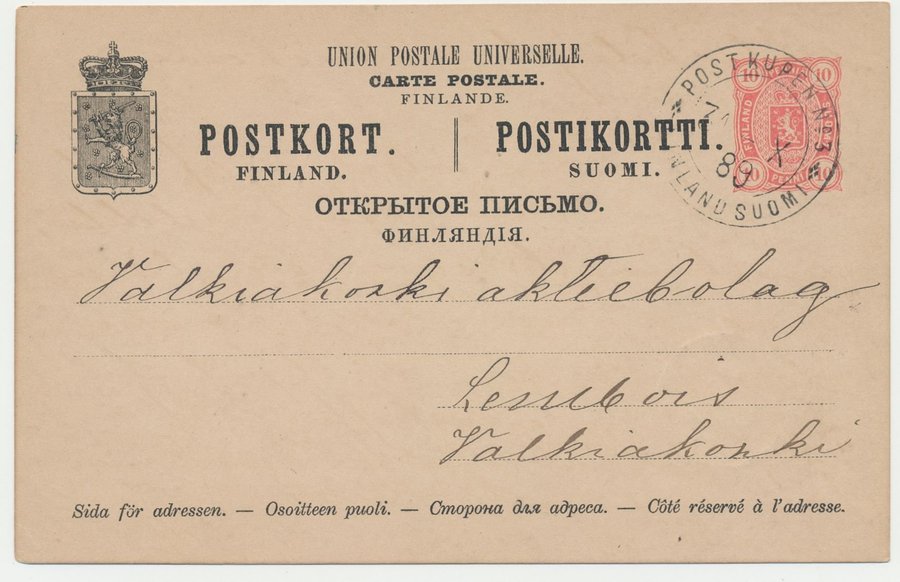 UNION POSTALE UNIVERSELLE.
CARTE POSTALE.
FINLANDE.
POSTKORT. | POSTIKORTTI.
FINLAND. SUOMI.
ОТКРЫТОЕ ПИСЬМО.
ФИНЛЯНДІЯ.
10 10
FINLAND
10 PENNI
POST KUPEN No 3
X
89
FINLAND SUOMI
Valkiakoski aktiebolag
Lembois
Valkiakoski
Sida för adressen. — Osoitteen puoli. — Сторона для адреса. — Côté réservé à l'adresse.